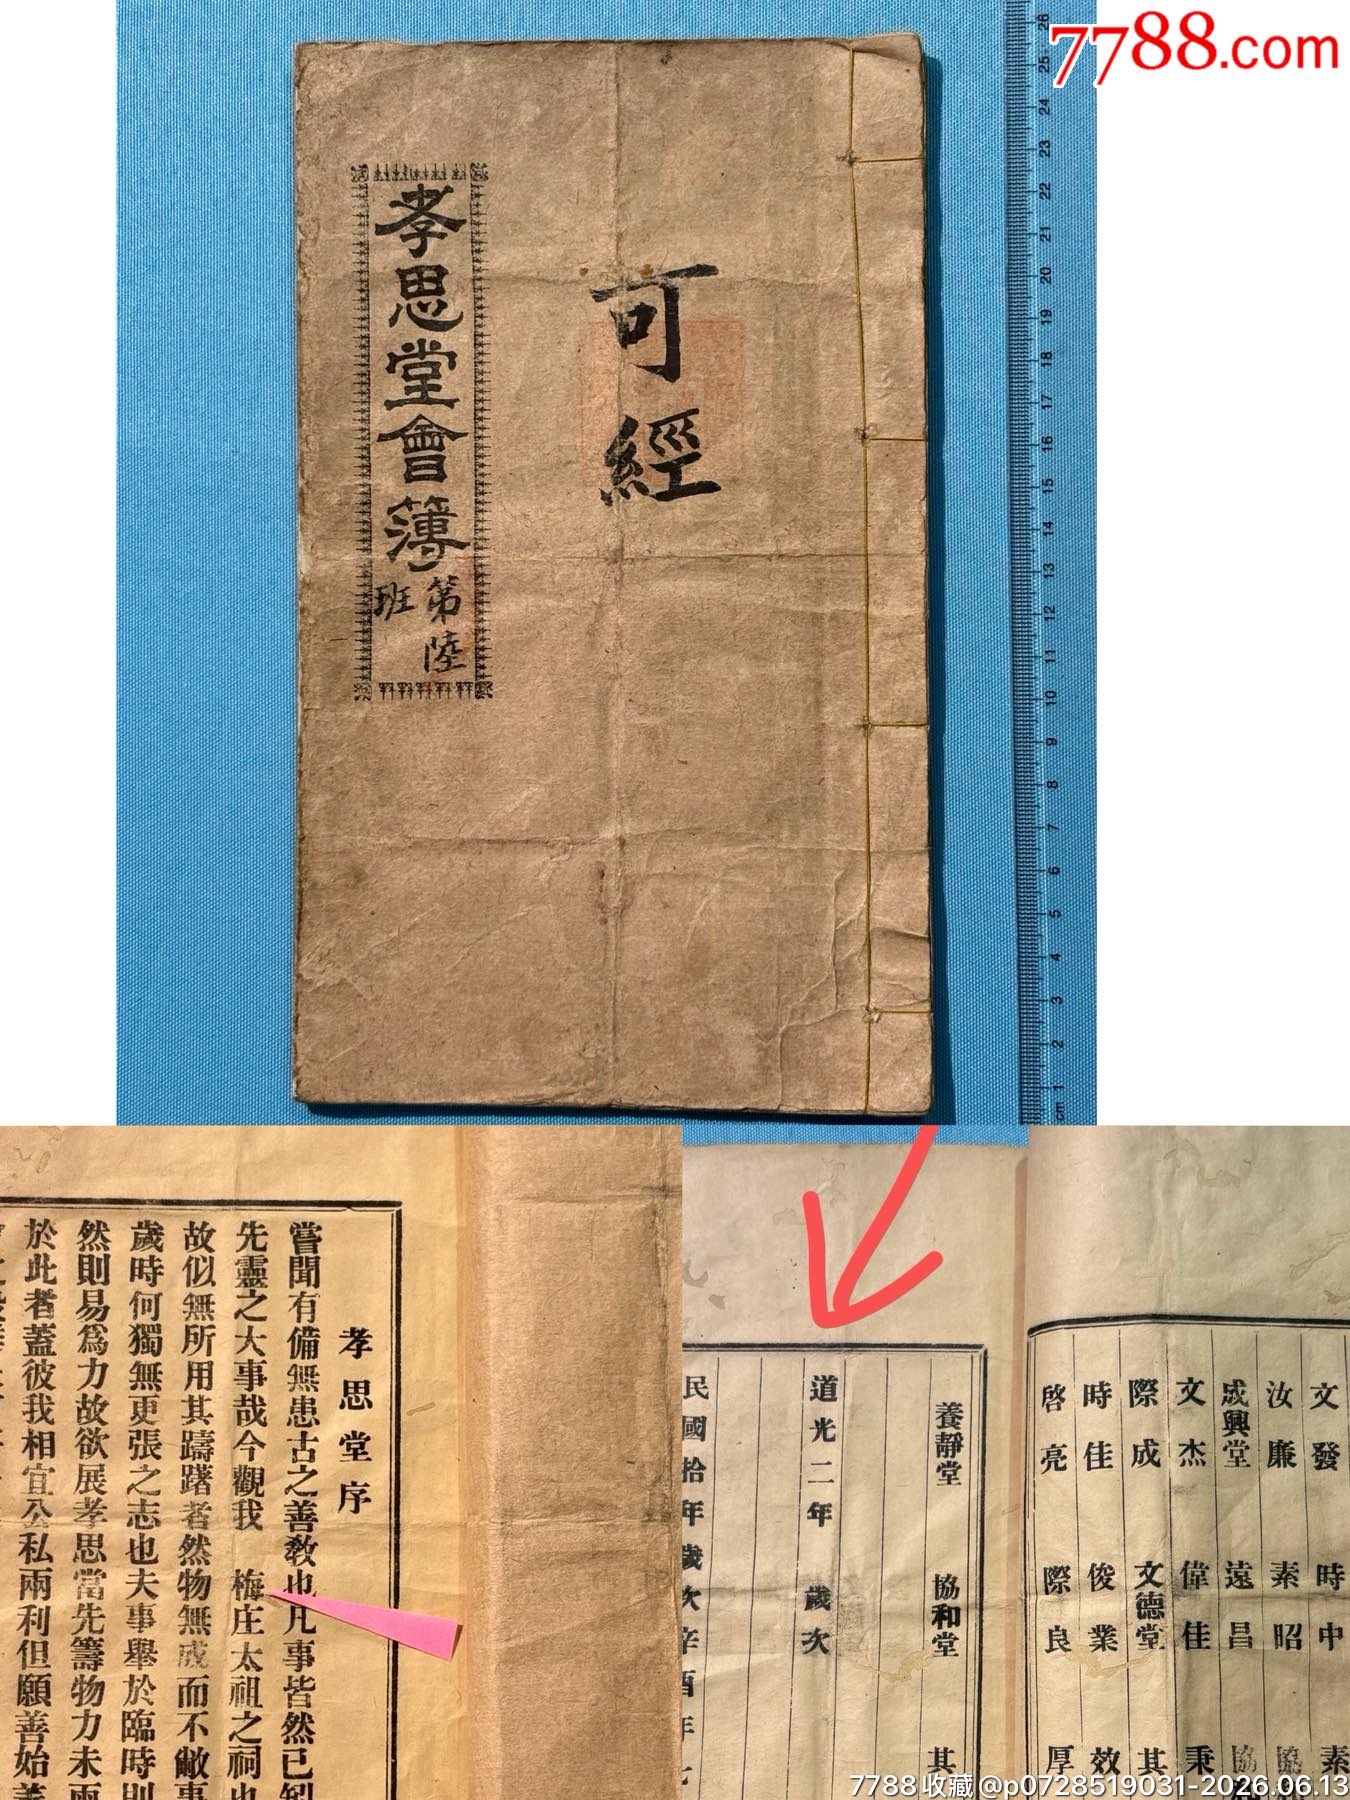 7788.com
可經
孝思堂會簿
第陸
班
26
25
24
23
22
21
20
19
18
17
16
15
14
13
12
11
10
9
8
7
6
5
4
3
2
1
cm
孝思堂序
嘗聞有備無患古之善教也凡事皆然已
先靈之大事哉今觀我 梅庄太祖之祠也
故似無所用其躊躇者然物無成而不敝事
歲時何獨無更張之志也夫事舉於臨時則
然則易爲力故欲展孝思當先籌物力未雨
於此者蓋彼我相宜公私兩利但願善始善
養靜堂 協和堂 其
道光二年 歲次
民國拾年歲次辛酉年七
文發 時中 素
汝廉 素昭 協
成興堂 遠昌 協和
文杰 偉佳 秉
際成 文德堂 其
時佳 俊業 效
啓亮 際良 厚
7788收藏@p0728519031-2026.06.13